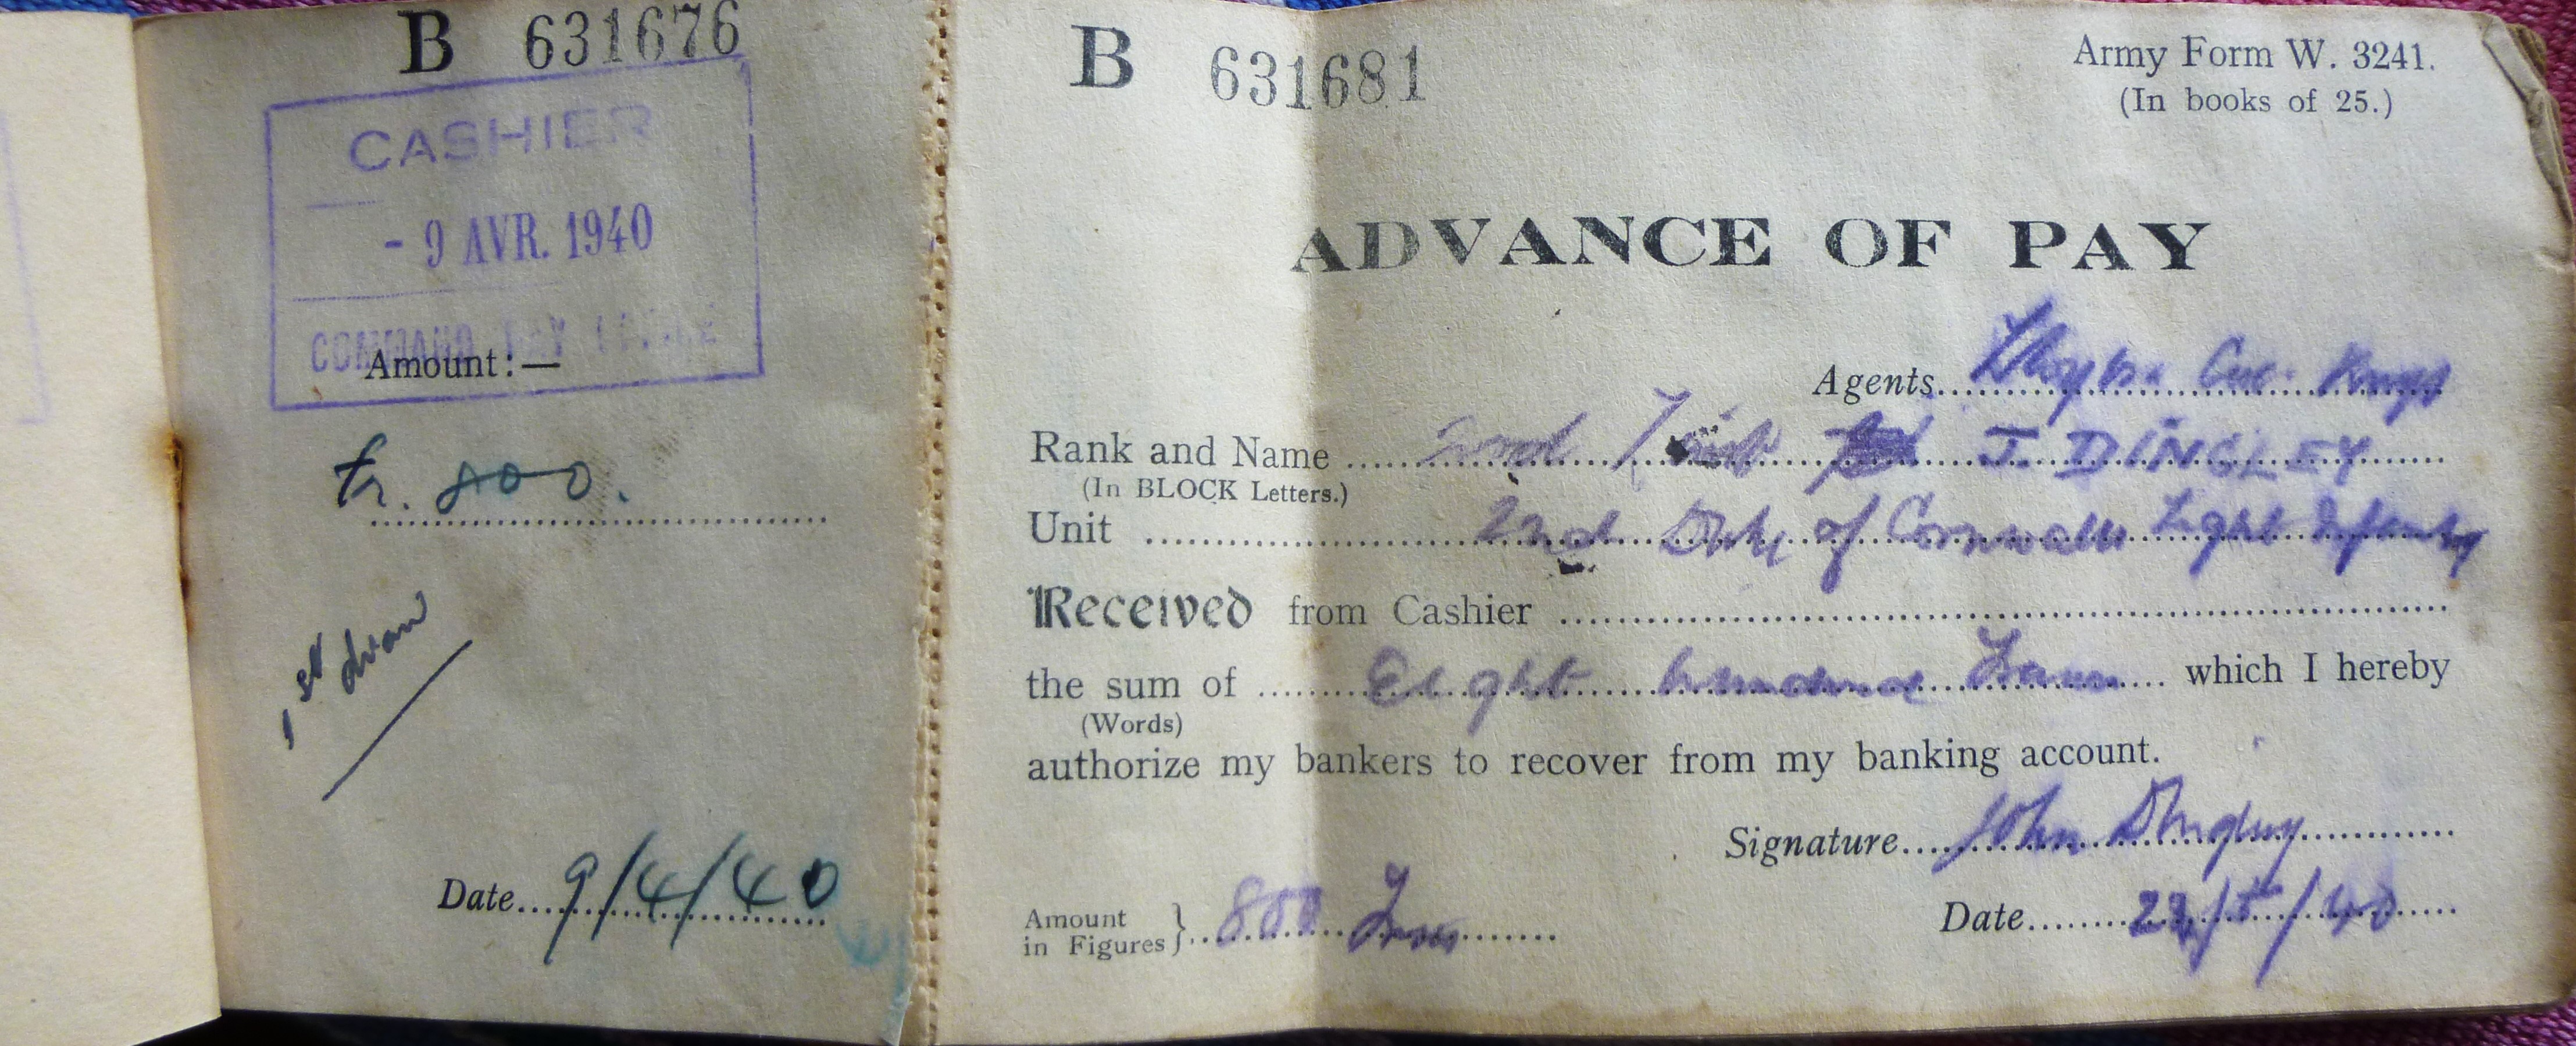 B 631676
CASHIER
- 9 AVR. 1940
COMMAND PAY
Amount:—
fr. 800.
1st
Date 9/4/40
B 631681
Army Form W. 3241.
(In books of 25.)
ADVANCE OF PAY
Agents
Rank and Name J. DINGLEY
(In BLOCK Letters.)
Unit 2nd Duke of Cornwalls Light Infantry
Received from Cashier
the sum of Eight hundred Francs which I hereby
(Words)
authorize my bankers to recover from my banking account.
Signature John Dingley
Amount in Figures } 800 Francs
Date 22/5/40